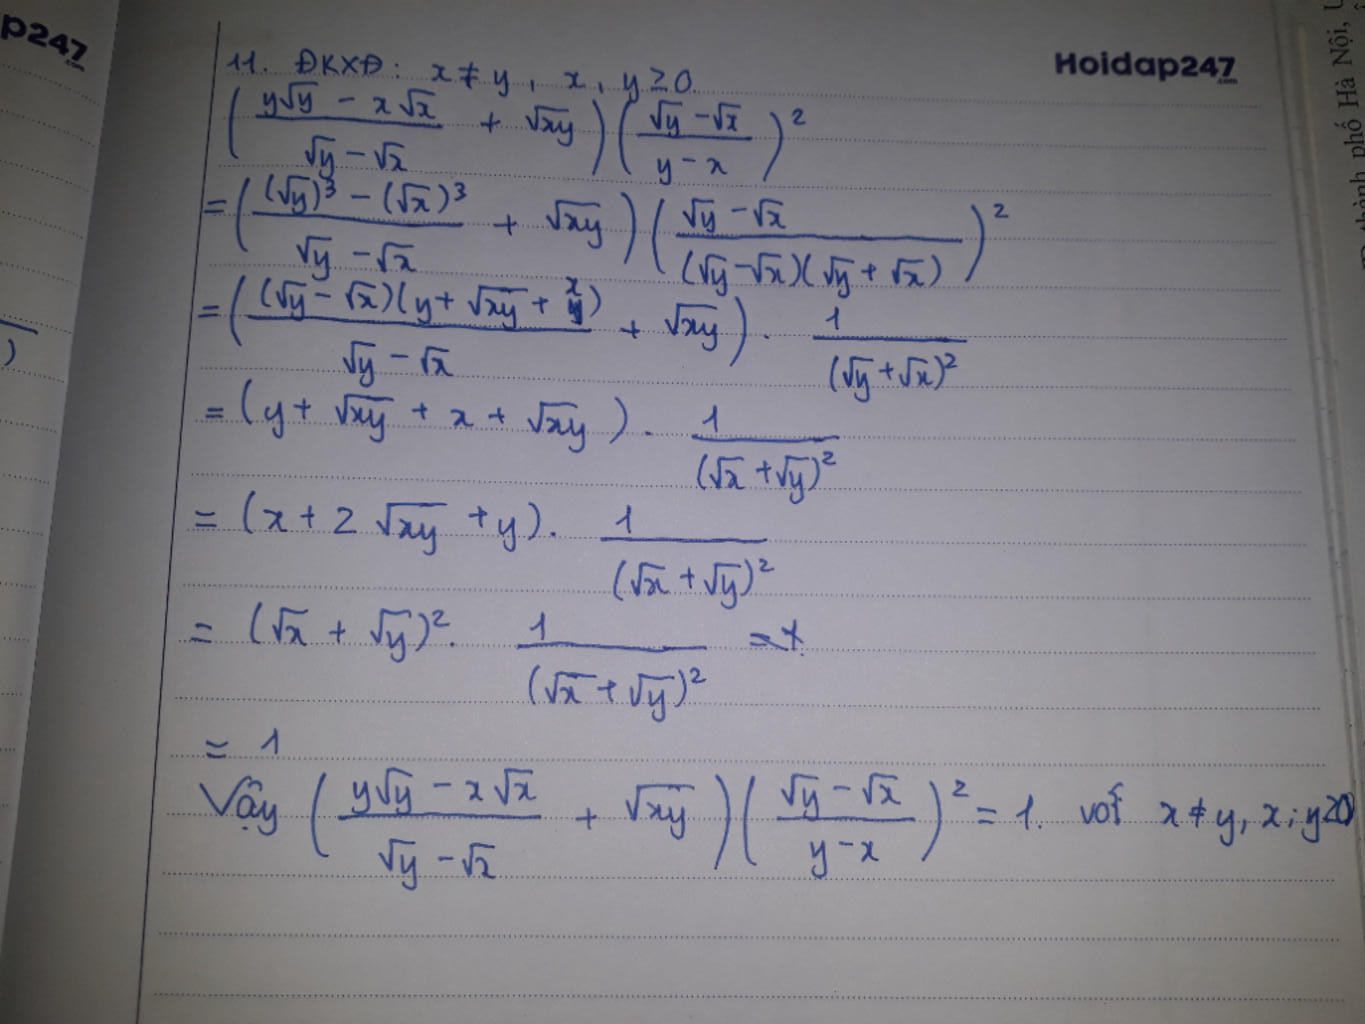 p247
.com
Hoidap247
.com
11. ĐKXĐ: x ≠ y, x, y ≥ 0.
( (y√y − x√x)/(√y − √x) + √xy ) ( (√y − √x)/(y − x) )²
= ( ((√y)³ − (√x)³)/(√y − √x) + √xy ) ( (√y − √x)/((√y − √x)(√y + √x)) )²
= ( ((√y − √x)(y + √xy + x))/(√y − √x) + √xy ) . 1/(√y + √x)²
= (y + √xy + x + √xy) . 1/(√x + √y)²
= (x + 2√xy + y) . 1/(√x + √y)²
= (√x + √y)² . 1/(√x + √y)²
= 1
Vậy ( (y√y − x√x)/(√y − √x) + √xy ) ( (√y − √x)/(y − x) )² = 1. với x ≠ y, x; y ≥ 0
)
thành phố Hà Nội,